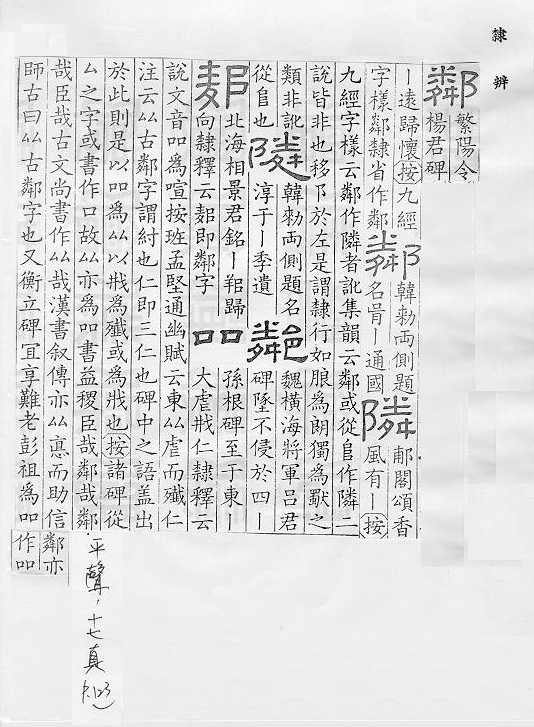 隸辨
鄰
繁陽令
楊君碑
丨遠歸懷按九經
字樣鄰隸省作鄰
鄰
韓勑兩側題
名骨丨通國
隣
郙閣頌香
風有丨按
九經字樣云鄰作隣者訛集韻云鄰或從𨸏作隣二
說皆非也移阝於左是謂隸行如朖為朗獨為獸之
類非訛
從𨸏也
隣
韓勑兩側題名
淳于丨季遺
鄰
魏橫海將軍呂君
碑墜不侵於四丨
北海相景君銘丨歸
向隸釋云即鄰字
吅
孫根碑至于東丨
大虐戕仁隸釋云
說文音吅為喧按班孟堅通幽賦云東厸虐而殲仁
注云厸古鄰字謂紂也仁即三仁也碑中之語盖出
於此則是以吅為厸以戕為殲或為戕也按諸碑從
厶之字或書作口故厸亦為吅書益稷臣哉鄰哉鄰
哉臣哉古文尚書作厸哉漢書叙傳亦厸悳而助信
師古曰厸古鄰字也又衡立碑冝享難老彭祖為吅
鄰亦
作吅
平聲,十七真 P.123